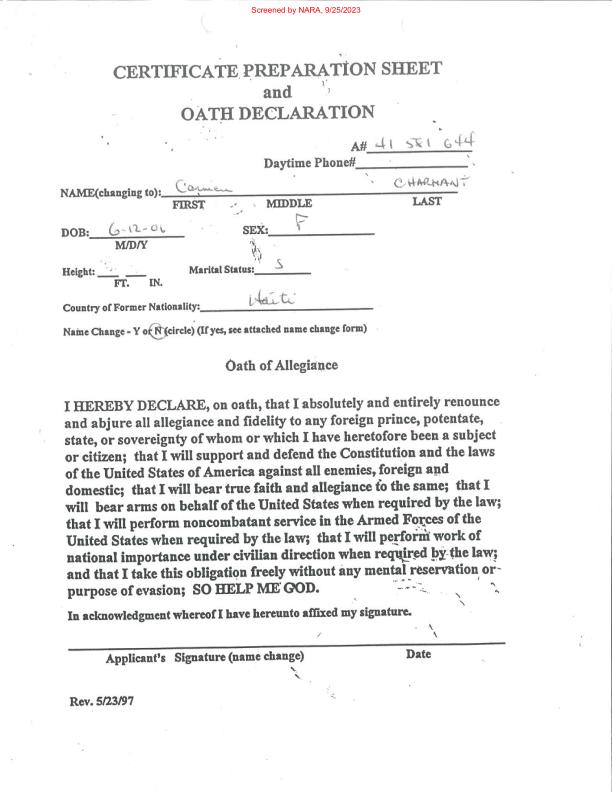 Screened by NARA, 9/25/2023
CERTIFICATE PREPARATION SHEET
and
OATH DECLARATION
A# 41 581 644
Daytime Phone#
NAME(changing to): Carmen CHARMANT
FIRST MIDDLE LAST
DOB: 6-12-06 SEX: F
M/D/Y
Height: Marital Status: S
FT. IN.
Country of Former Nationality: Haiti
Name Change - Y or N (circle) (If yes, see attached name change form)
Oath of Allegiance
I HEREBY DECLARE, on oath, that I absolutely and entirely renounce
and abjure all allegiance and fidelity to any foreign prince, potentate,
state, or sovereignty of whom or which I have heretofore been a subject
or citizen; that I will support and defend the Constitution and the laws
of the United States of America against all enemies, foreign and
domestic; that I will bear true faith and allegiance to the same; that I
will bear arms on behalf of the United States when required by the law;
that I will perform noncombatant service in the Armed Forces of the
United States when required by the law; that I will perform work of
national importance under civilian direction when required by the law;
and that I take this obligation freely without any mental reservation or
purpose of evasion; SO HELP ME GOD.
In acknowledgment whereof I have hereunto affixed my signature.
Applicant's Signature (name change) Date
Rev. 5/23/97